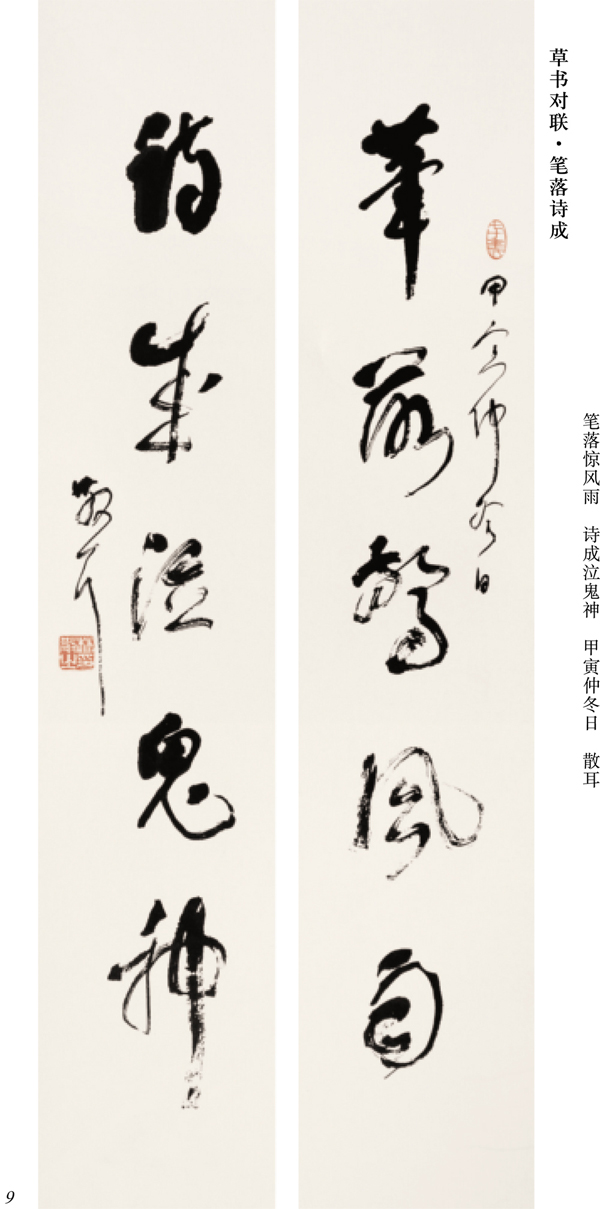 草书对联·笔落诗成
笔落惊风雨 诗成泣鬼神 甲寅仲冬日 散耳
甲寅仲冬日
筆落驚風雨
詩成泣鬼神
散耳
9